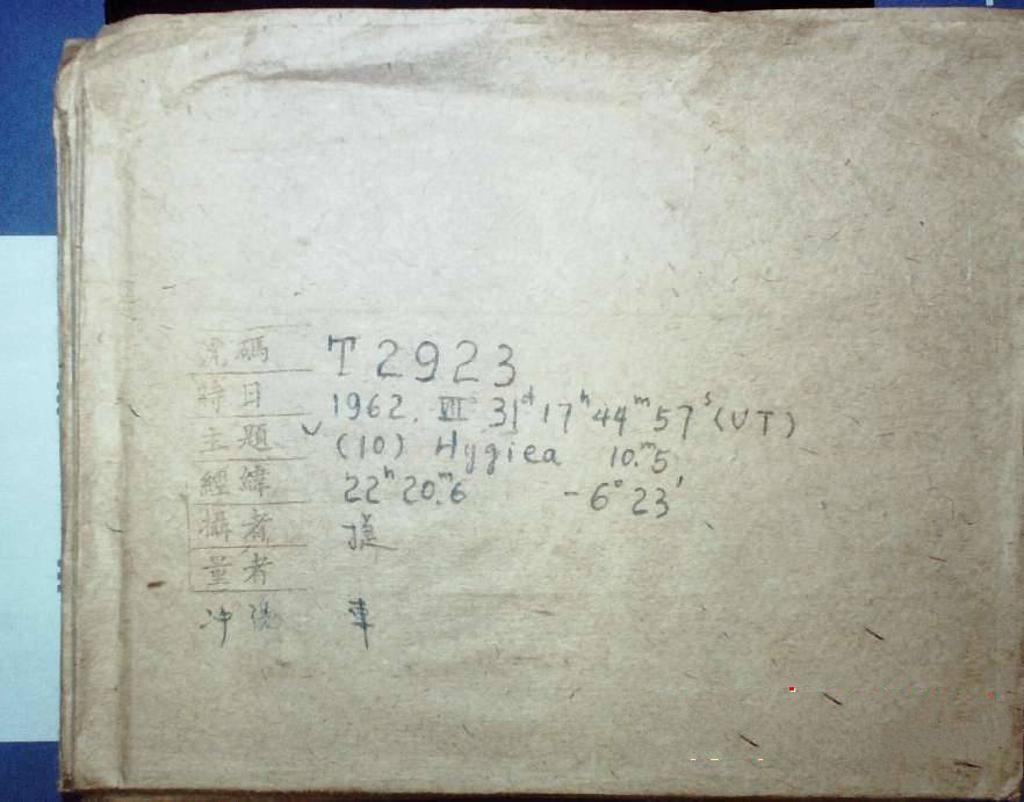 號碼 T2923
時日 1962. VII 31ᵈ17ʰ44ᵐ57ˢ(UT)
主題 ✓ (10) Hygiea 10.ᵐ5
經緯 22ʰ20.ᵐ6 -6°23′
攝者
量者
冲洗